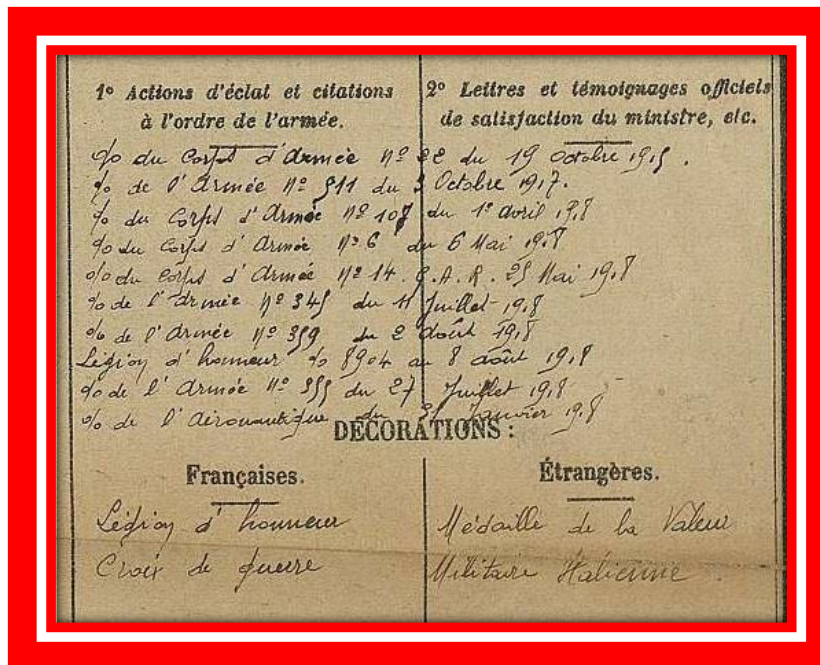 1º Actions d'éclat et citations
à l'ordre de l'armée.
2º Lettres et témoignages officiels
de satisfaction du ministre, etc.
% du Corps d'Armée Nº 22 du 19 octobre 1915.
% de l'Armée Nº 511 du 3 Octobre 1917.
% du Corps d'Armée Nº 107 du 1er avril 1918
% du Corps d'Armée Nº 6 du 6 Mai 1918
% du Corps d'Armée Nº 14 25 Mai 1918
% de l'Armée Nº 345 du 11 Juillet 1918
% de l'Armée Nº 359 du 2 août 1918
Légion d'honneur % 8904 du 8 août 1918
% de l'Armée Nº 355 du 27 Juillet 1918
% de l'Aéronautique du 31 Janvier 1918
DÉCORATIONS :
Françaises.
Légion d'honneur
Croix de guerre
Étrangères.
Médaille de la Valeur
Militaire Italienne.